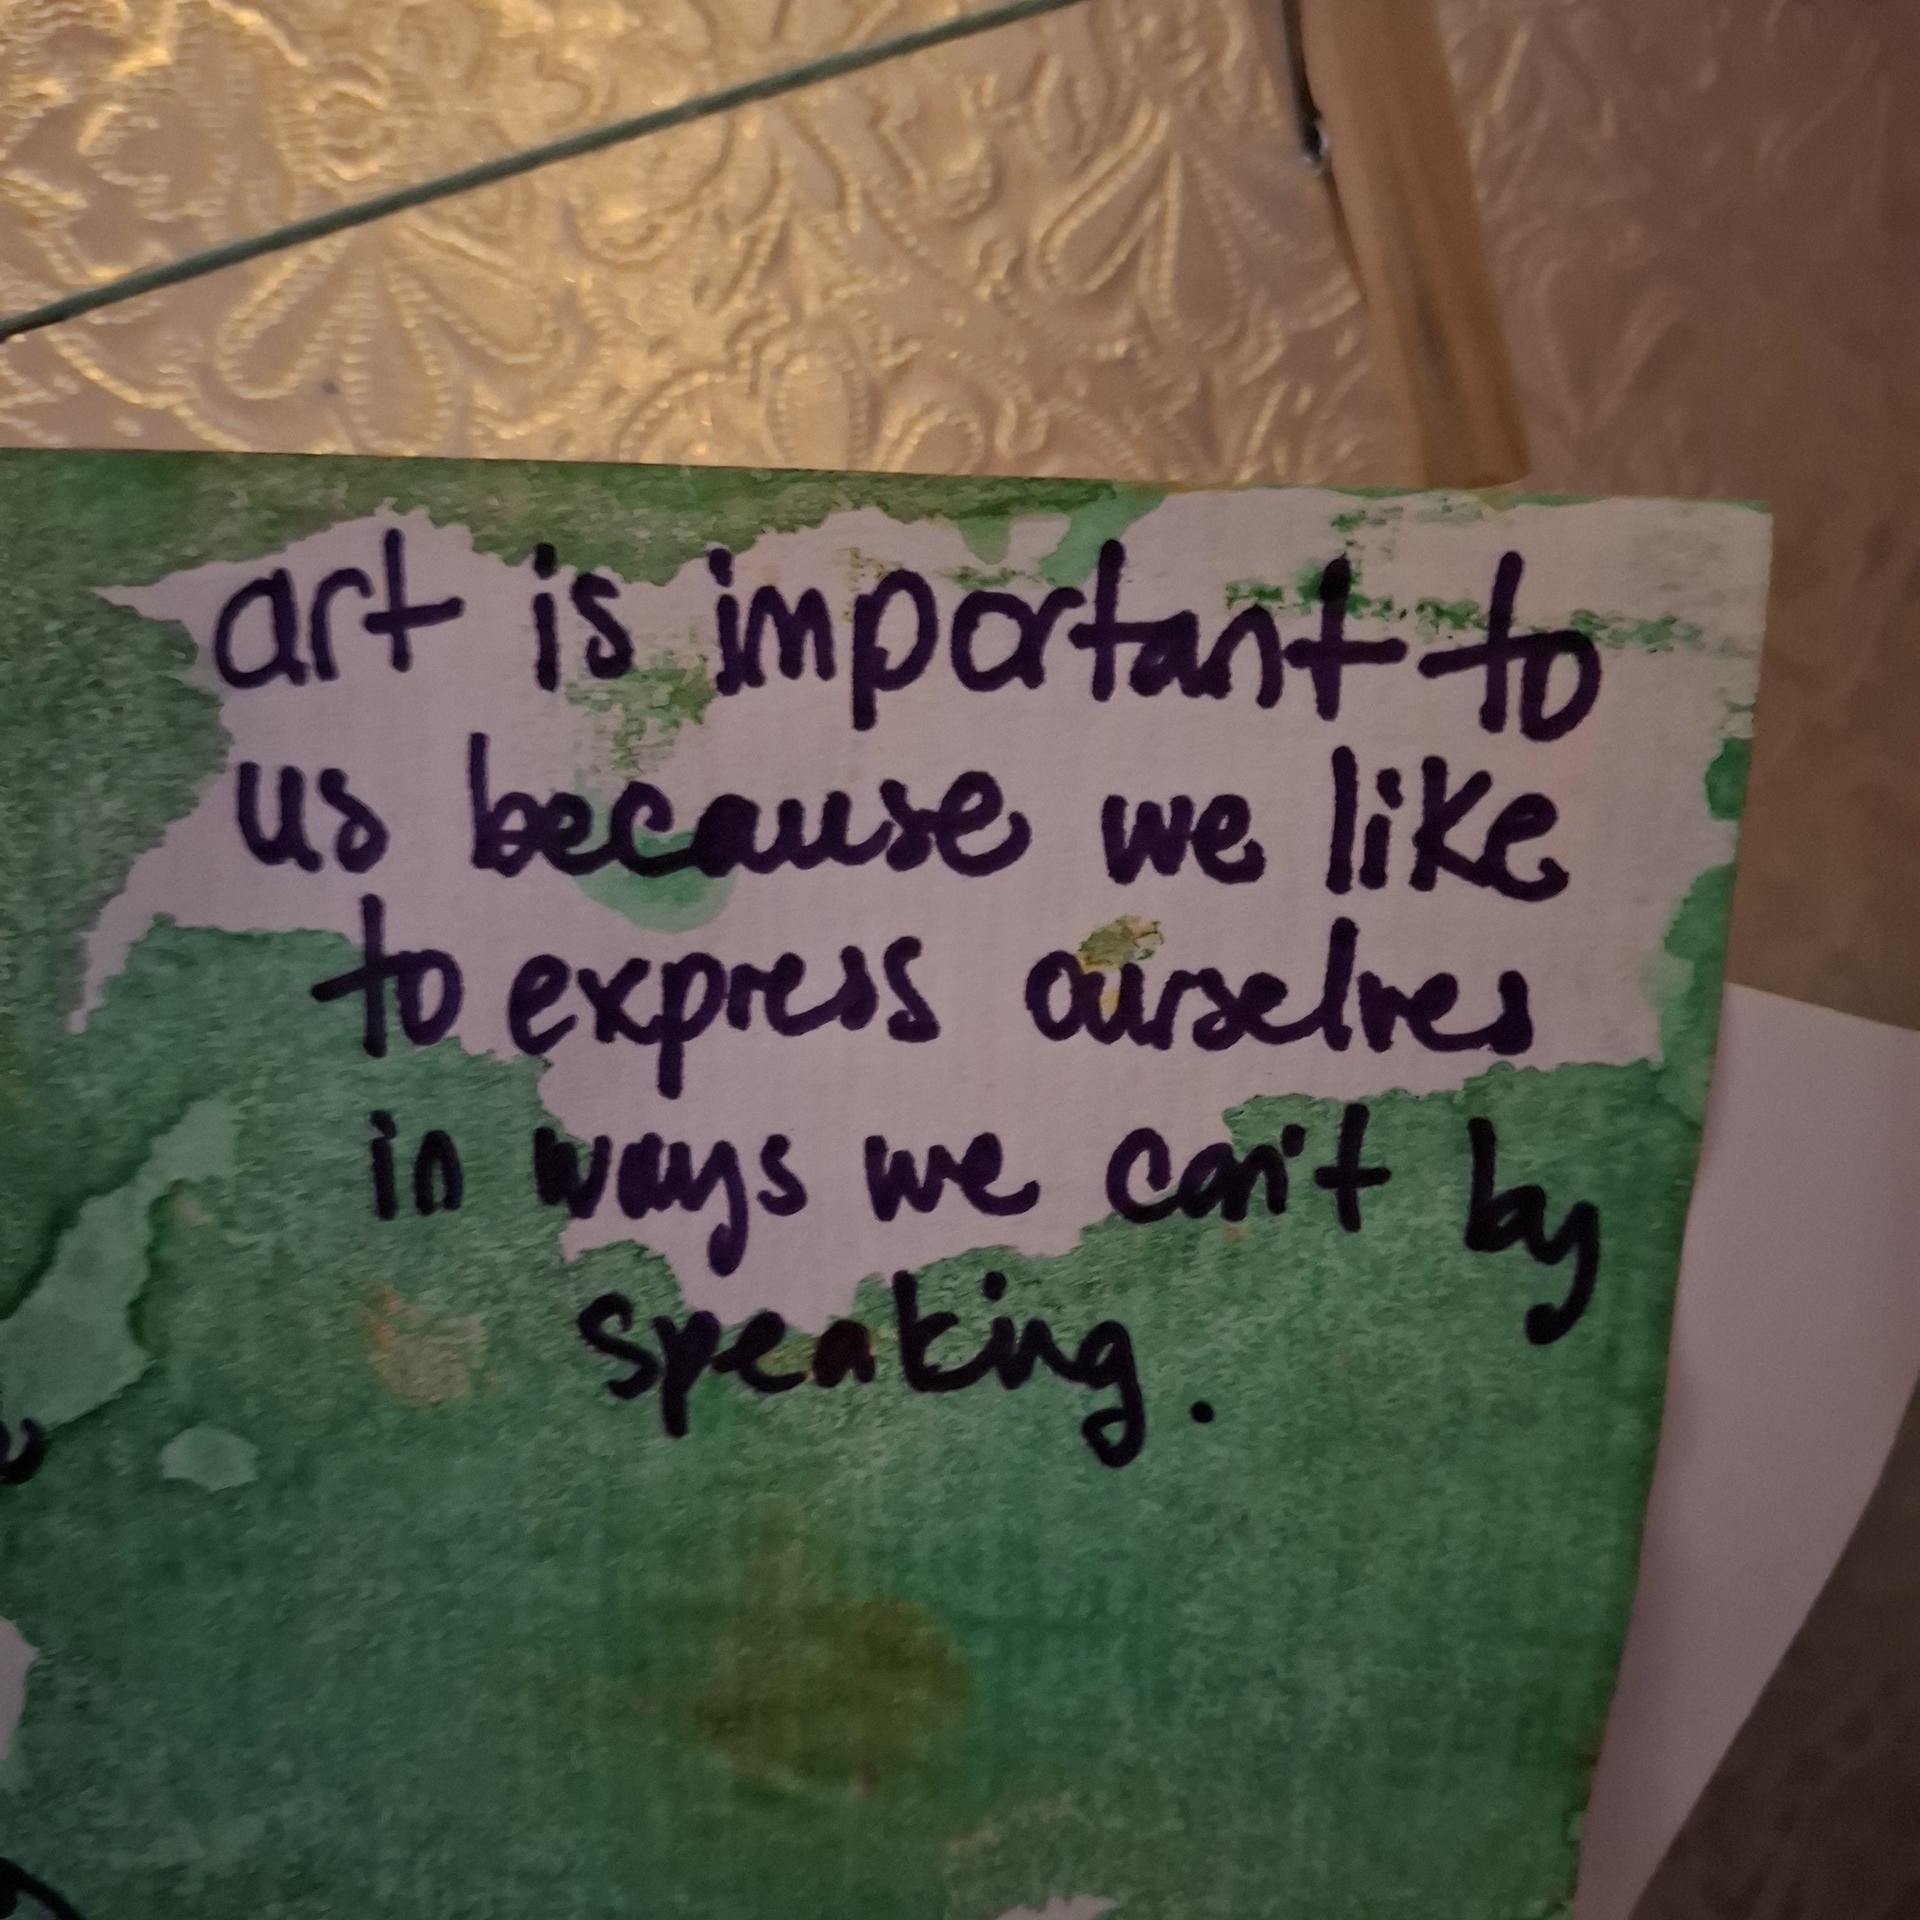 art is important to
us because we like
to express ourselves
in ways we can't by
speaking.